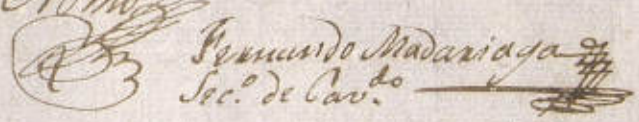 Fernando Madariaga
Sec.º de Cav.do